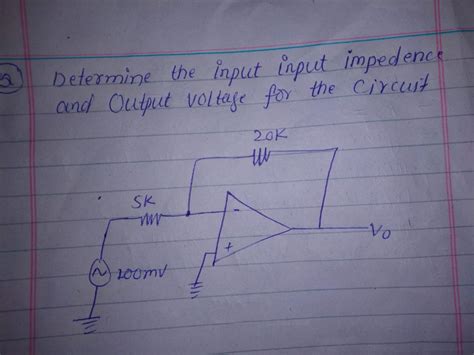 2
Determine the input input impedence
and Output voltage for the Circuit
20K
5K
-
+
Vo
200mv